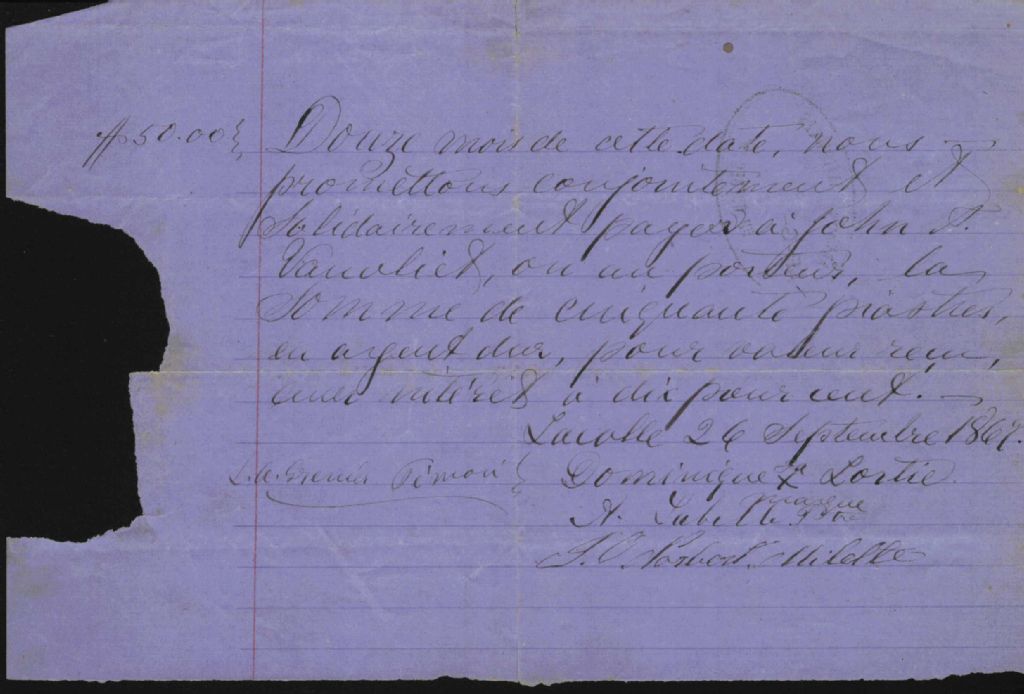 $50.00
Douze mois de cette date, nous
promettons conjointement et
Solidairement payer à John A.
Vanvliet, ou au porteur, la
Somme de cinquante piastres,
en argent dur, pour valeur reçu,
avec intérêt à dix pour cent.
Lacolle 26 Septembre 1867.
Témoin Dominique X Lortie
marque
A.
Norbert